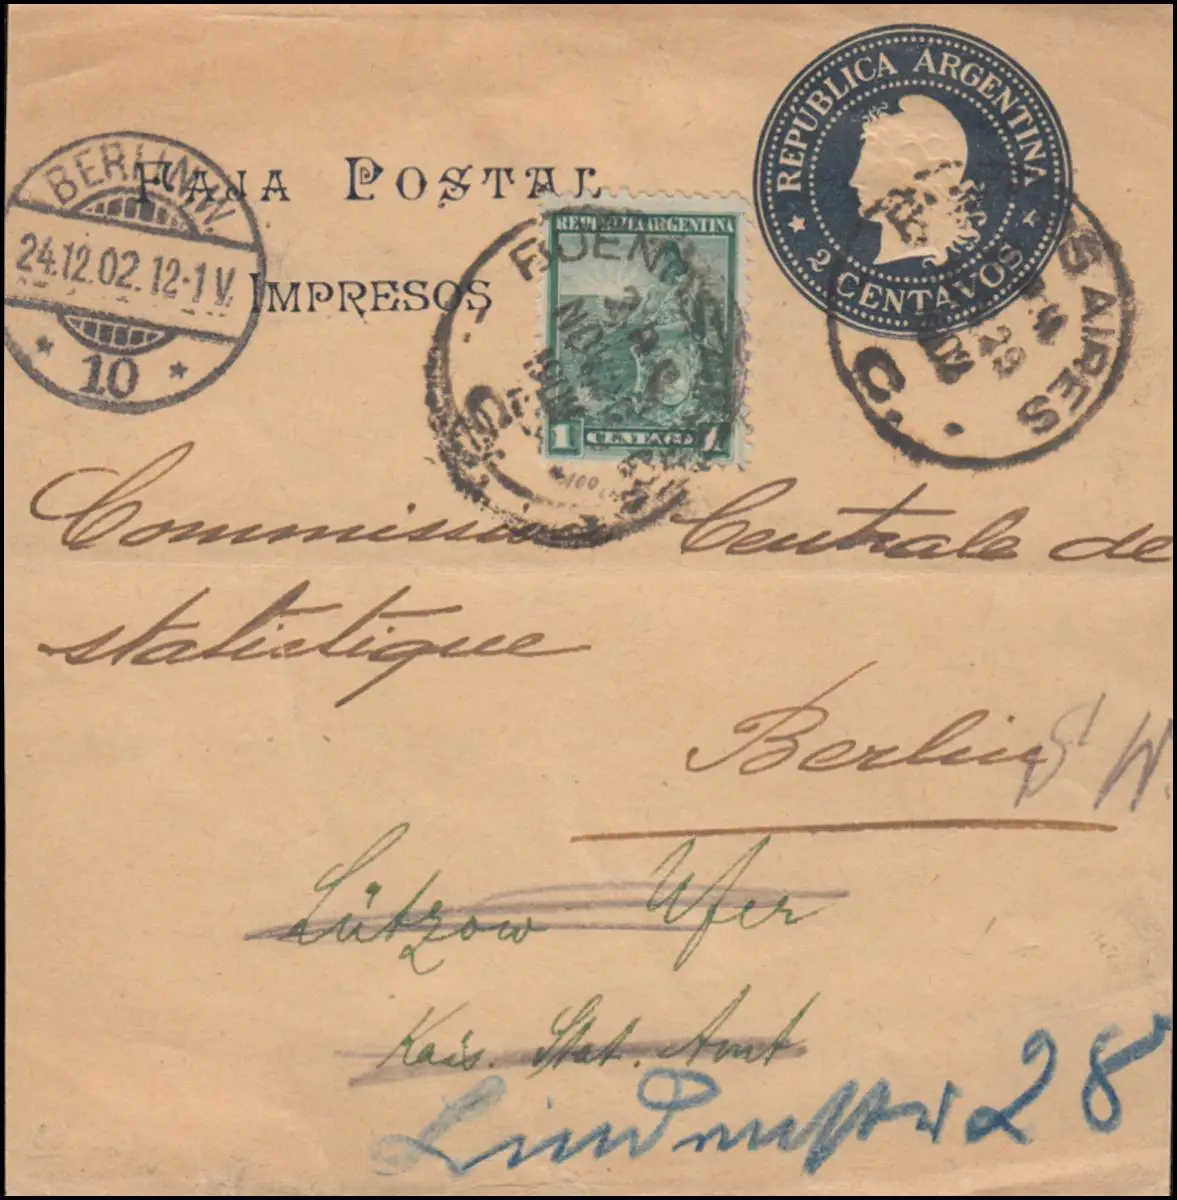 REPUBLICA ARGENTINA
2 CENTAVOS
FAJA POSTAL
IMPRESOS
BERLIN N.W.
24.12.02.12-1 V.
* 10 *
REPUBLICA ARGENTINA
1 CENTAVO 1
BUENOS
NOV
S AIRES
29
Commission Centrale de
statistique
Berlin S W.
Lützow Ufer
Kais. Stat. Amt
Lindenstr 28